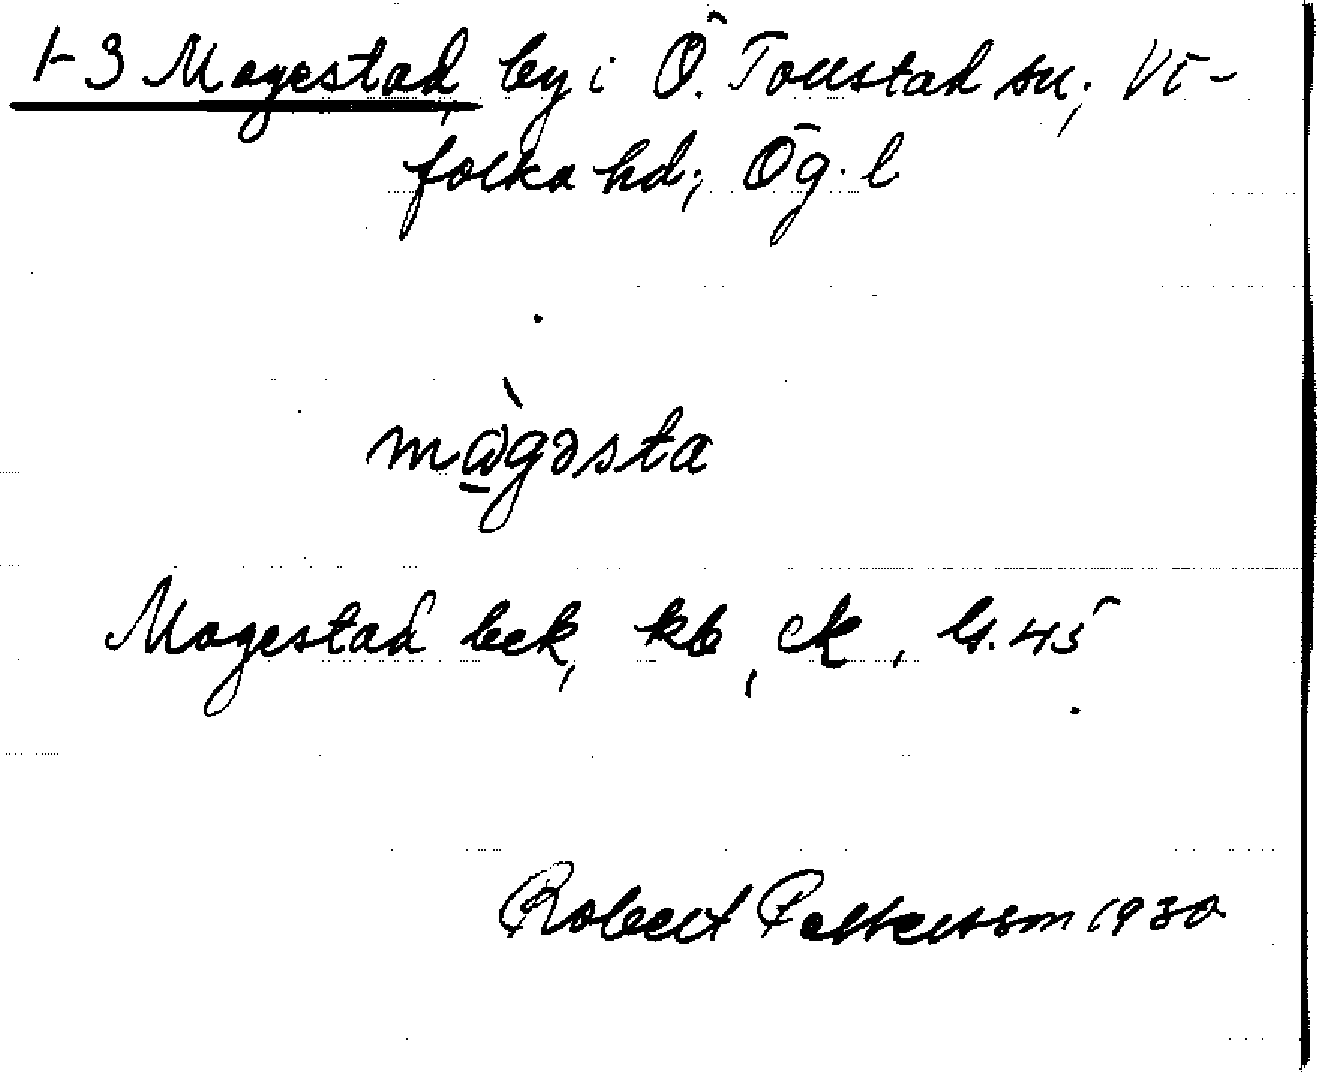 1-3 Mogestad, by i Ö. Tollstad sn; Vi-
folka hd; Ög. l
mògəsta
Mogestad bek, kb, ek, lt. 45
Robert Pettersson 1930